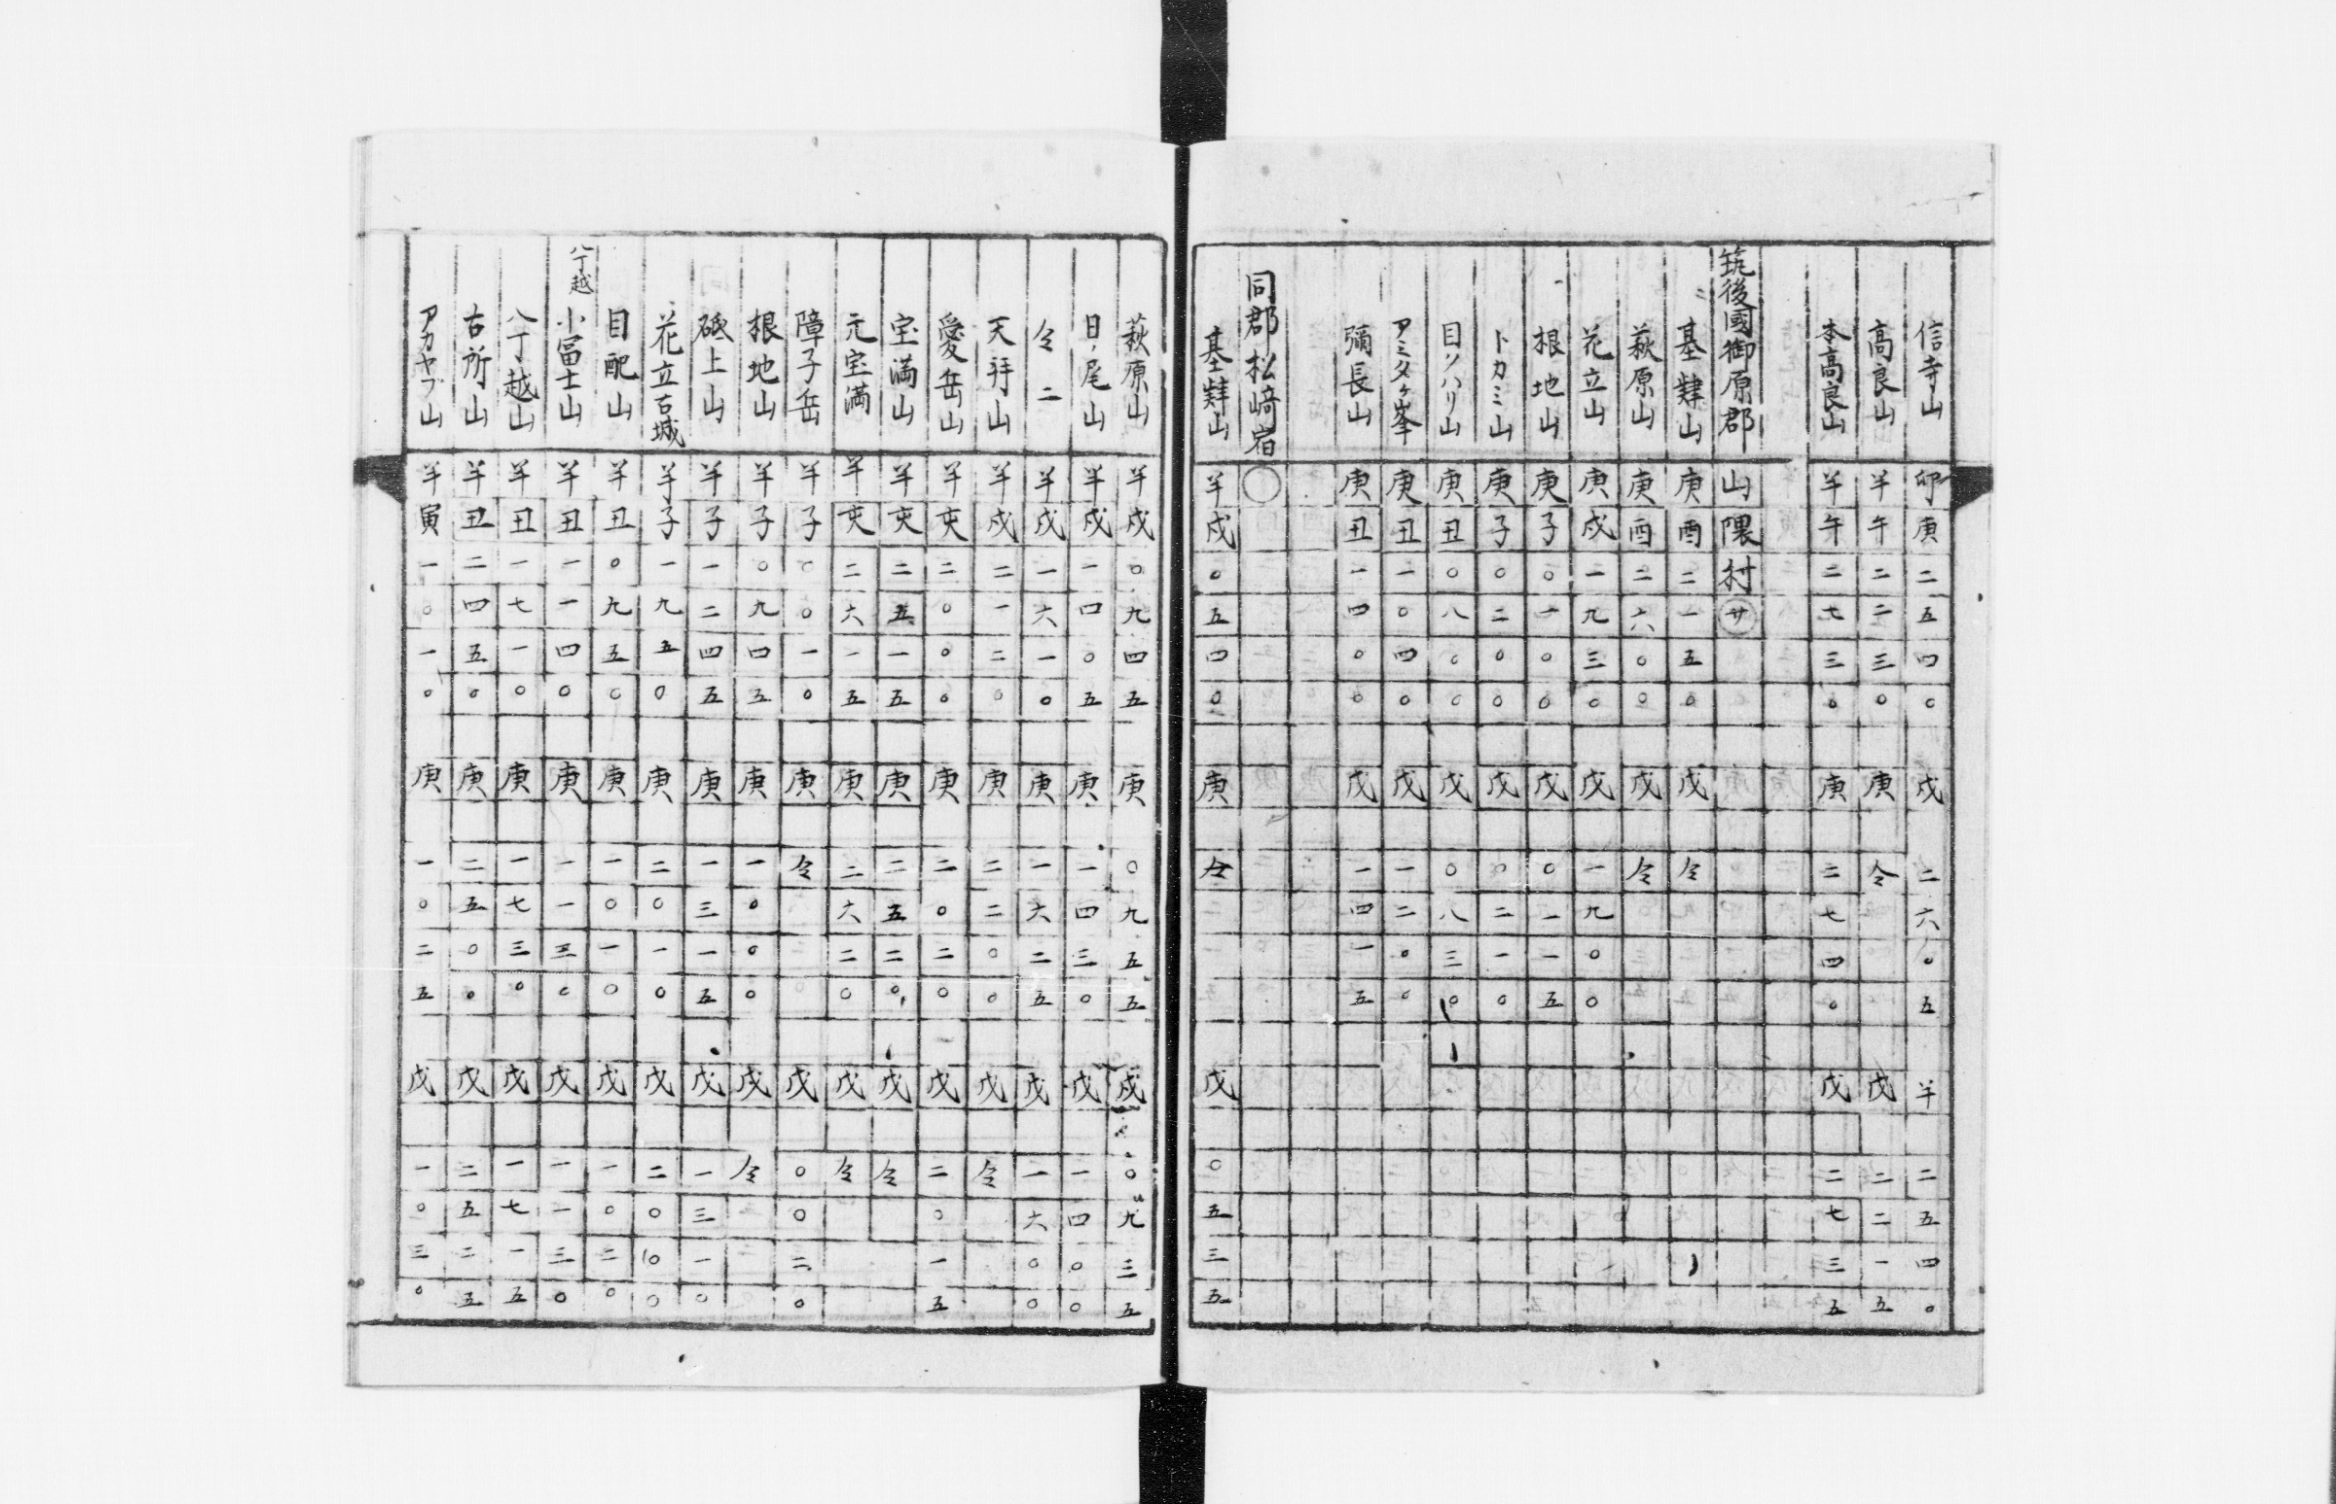 信寺山 卯庚二五四〇 戌 二六〇五 羊 二五四〇
高良山 羊午二二三〇 庚 仝 戊 二二一五
本高良山 羊午二七三〇 庚 二七四〇 戊 二七三五
筑後國御原郡山隈村 廿
基肄山 庚酉二一五〇 戊 仝
萩原山 庚酉二六〇〇 戊 仝
花立山 庚戌一九三〇 戊 一九〇〇
根地山 庚子〇一〇〇 戊 〇一一五
トカミ山 庚子〇二〇〇 戊 〇二一〇
目ソハリ山 庚丑〇八〇〇 戊 〇八三〇
アミタヶ峯 庚丑一〇四〇 戊 一二〇〇
彌長山 庚丑一四〇〇 戊 一四一五
同郡松﨑宿 〇
基肄山 羊戌〇五四〇 庚 仝 戊 〇五三五
萩原山 羊戌〇九四五 庚 〇九五五 戊 〇九三五
日ノ尾山 羊戌一四〇五 庚 一四三〇 戊 一四〇〇
仝二 羊戌一六一〇 庚 一六二五 戊 一六〇〇
天拜山 羊戌二一二〇 庚 二二〇〇 戊 仝
愛岳山 羊亥二〇〇〇 庚 二〇二〇 戊 二〇一五
宝満山 羊亥二五一五 庚 二五二〇 戊 仝
元宝満 羊亥二六一五 庚 二六二〇 戊 仝
障子岳 羊子〇〇一〇 庚 仝 戊 〇〇二〇
根地山 羊子〇九四五 庚 一〇〇〇 戊 仝
砥上山 羊子一二四五 庚 一三一五 戊 一三一〇
花立古城 羊子一九五〇 庚 二〇一〇 戊 二〇〇〇
目配山 羊丑〇九五〇 庚 一〇一〇 戊 一〇二〇
八丁越
小冨士山 羊丑一一四〇 庚 一一三〇 戊 一一三〇
八丁越山 羊丑一七一〇 庚 一七三〇 戊 一七一五
古所山 羊丑二四五〇 庚 二五〇〇 戊 二五二五
アカヤブ山 羊寅一〇一〇 庚 一〇二五 戊 一〇三〇